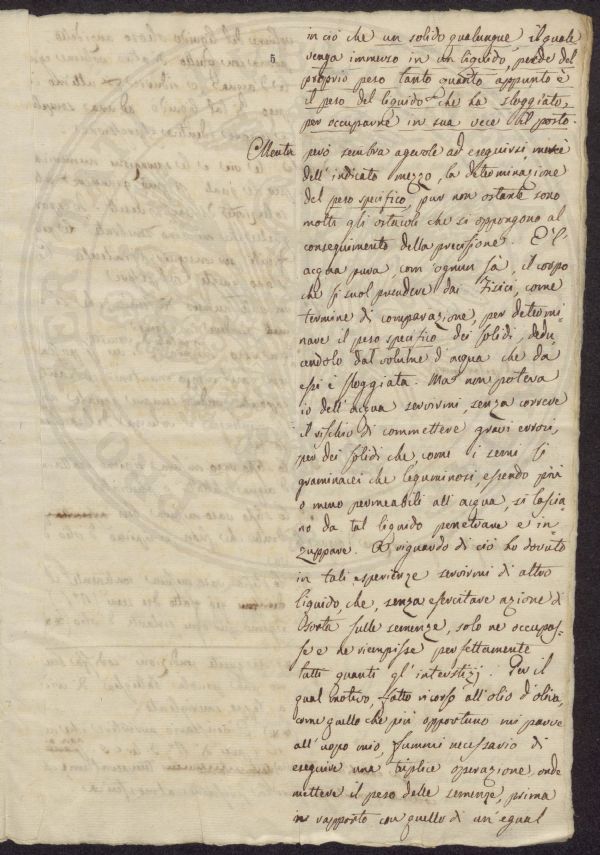 in ciò che un solido qualunque il quale
5
venga immerso in un liquido, perde del
proprio peso tanto quanto appunto è
il peso del liquido che ha sloggiato,
per occuparne in sua vece il posto.
però sembra agevole ad eseguirsi, mercè
dell'indicato mezzo, la determinazione
del peso specifico, pur non ostante sono
molti gli ostacoli che si oppongono al
conseguimento della precisione. È l'
acqua pura, com'ognun sà, il corpo
che si suol prendere dai Fisici, come
termine di comparazione, per determi-
nare il peso specifico dei solidi, dedu-
cendolo dal volume d'acqua che da
essi è sloggiata. Ma non poteva
io dell'acqua servirmi, senza correre
il rischio di commettere gravi errori,
per dei solidi che, come i semi sì
graminacei che leguminosi, essendo più
o meno permeabili all'acqua, si lascia-
no da tal liquido penetrare e in-
zuppare. A riguardo di ciò ho dovuto
in tali esperienze servirmi di altro
liquido, che, senza esercitare azione di
sorta sulle semenze, solo ne occupas-
se e ne riempisse perfettamente
tutti quanti gl'interstizj. Per il
qual motivo, fatto ricorso all'olio d'oliva,
come quello che più opportuno mi parve
all'uopo mio, fummi necessario di
eseguire una triplice operazione, onde
mettere il peso delle semenze, prima
in rapporto con quello di un'egual